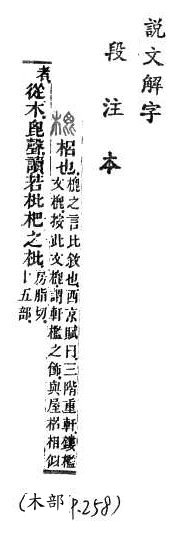 說文解字
段注本
梠也。㮰之言比敘也。西京賦曰。三階重軒。鏤檻
文㮰。按此文㮰。謂軒檻之飾。與屋梠相似
者。從木。𣬉聲。讀若枇杷之枇。房脂切。十五部。
(木部 P.258)